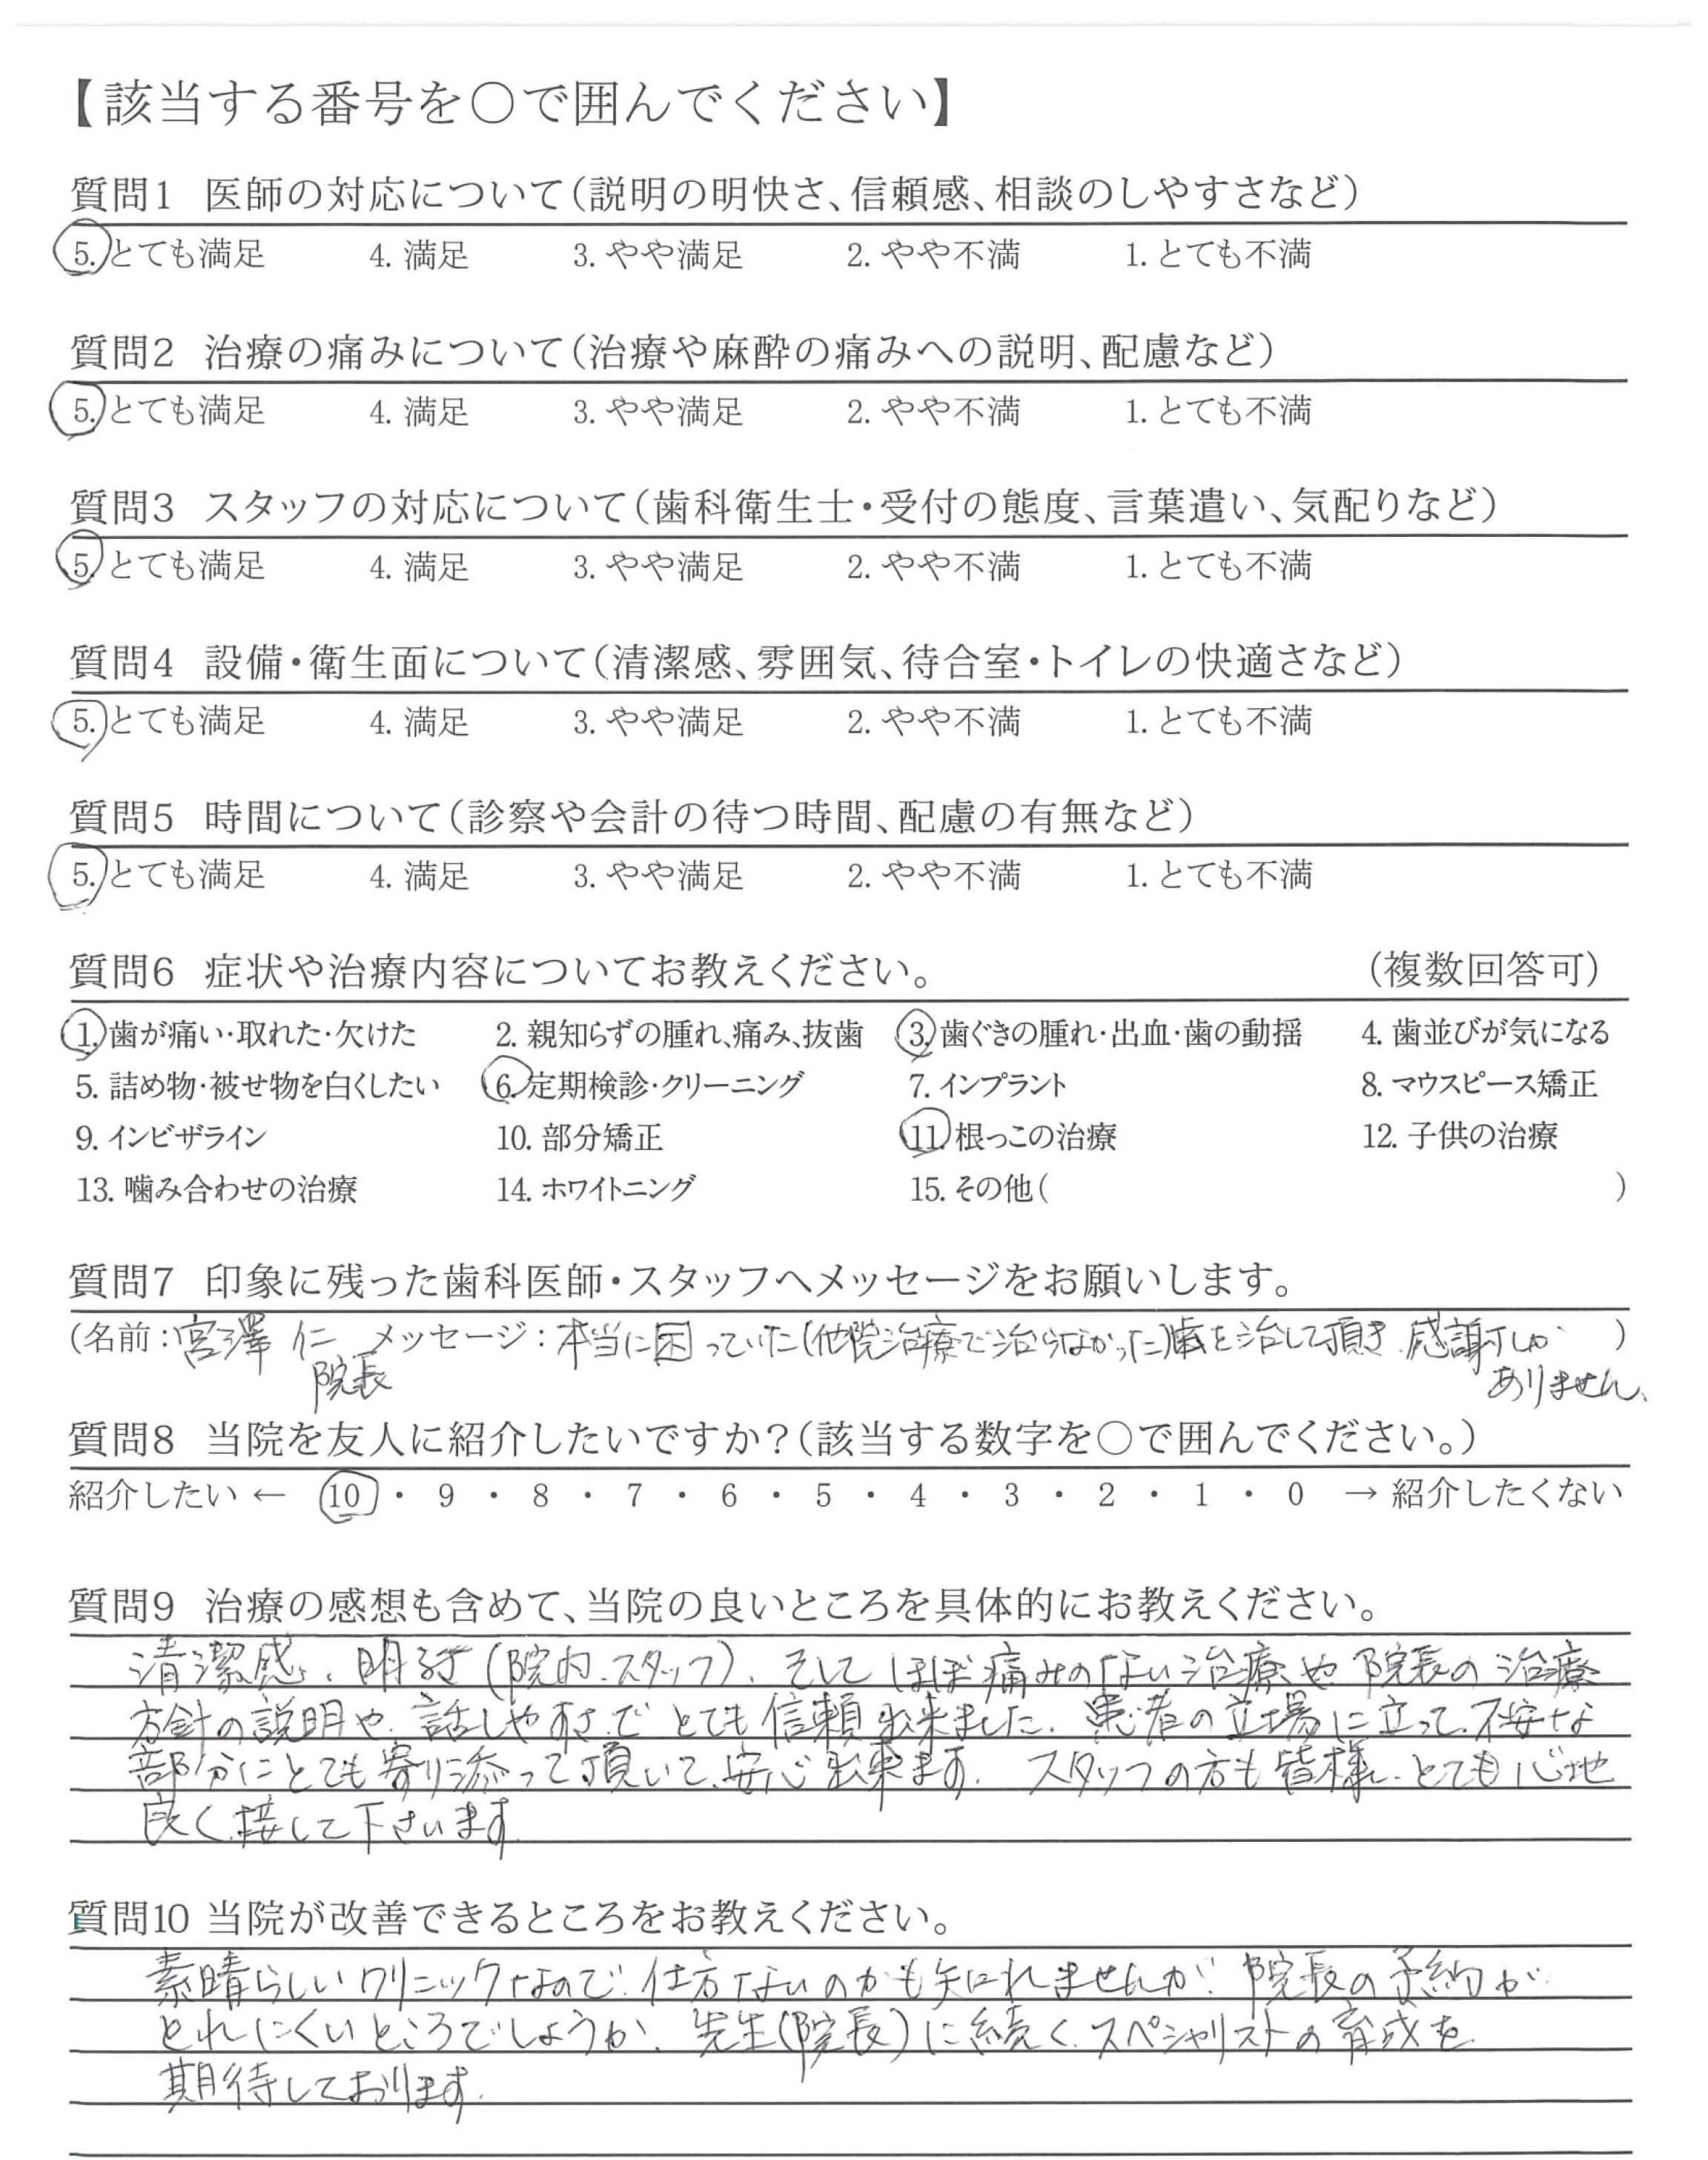 【該当する番号を〇で囲んでください】
質問1 医師の対応について(説明の明快さ、信頼感、相談のしやすさなど)
5. とても満足 4. 満足 3. やや満足 2. やや不満 1. とても不満
質問2 治療の痛みについて(治療や麻酔の痛みへの説明、配慮など)
5. とても満足 4. 満足 3. やや満足 2. やや不満 1. とても不満
質問3 スタッフの対応について(歯科衛生士・受付の態度、言葉遣い、気配りなど)
5. とても満足 4. 満足 3. やや満足 2. やや不満 1. とても不満
質問4 設備・衛生面について(清潔感、雰囲気、待合室・トイレの快適さなど)
5. とても満足 4. 満足 3. やや満足 2. やや不満 1. とても不満
質問5 時間について(診察や会計の待つ時間、配慮の有無など)
5. とても満足 4. 満足 3. やや満足 2. やや不満 1. とても不満
質問6 症状や治療内容についてお教えください。 (複数回答可)
1. 歯が痛い・取れた・欠けた 2. 親知らずの腫れ、痛み、抜歯 3. 歯ぐきの腫れ・出血・歯の動揺 4. 歯並びが気になる
5. 詰め物・被せ物を白くしたい 6. 定期検診・クリーニング 7. インプラント 8. マウスピース矯正
9. インビザライン 10. 部分矯正 11. 根っこの治療 12. 子供の治療
13. 噛み合わせの治療 14. ホワイトニング 15. その他( )
質問7 印象に残った歯科医師・スタッフへメッセージをお願いします。
(名前:宮澤 仁 メッセージ:本当に困っていた(他院治療で治らなかった)歯を治して頂き、感謝しか )
院長 ありません、
質問8 当院を友人に紹介したいですか?(該当する数字を〇で囲んでください。)
紹介したい ← 10 ・ 9 ・ 8 ・ 7 ・ 6 ・ 5 ・ 4 ・ 3 ・ 2 ・ 1 ・ 0 → 紹介したくない
質問9 治療の感想も含めて、当院の良いところを具体的にお教えください。
清潔感、明るさ(院内、スタッフ)、そして ほぼ痛みのない治療や 院長の治療
方針の説明や、話しやすさで とても信頼出来ました。患者の立場に立って、不安な
部分にとても寄り添って頂いて、安心出来ます。スタッフの方も皆様、とても心地
良く接して下さいます
質問10 当院が改善できるところをお教えください。
素晴らしいクリニックなので、仕方ないのかも知れませんが、院長の予約が
とれにくいところでしょうか、先生(院長)に続く、スペシャリストの育成を
期待しております。